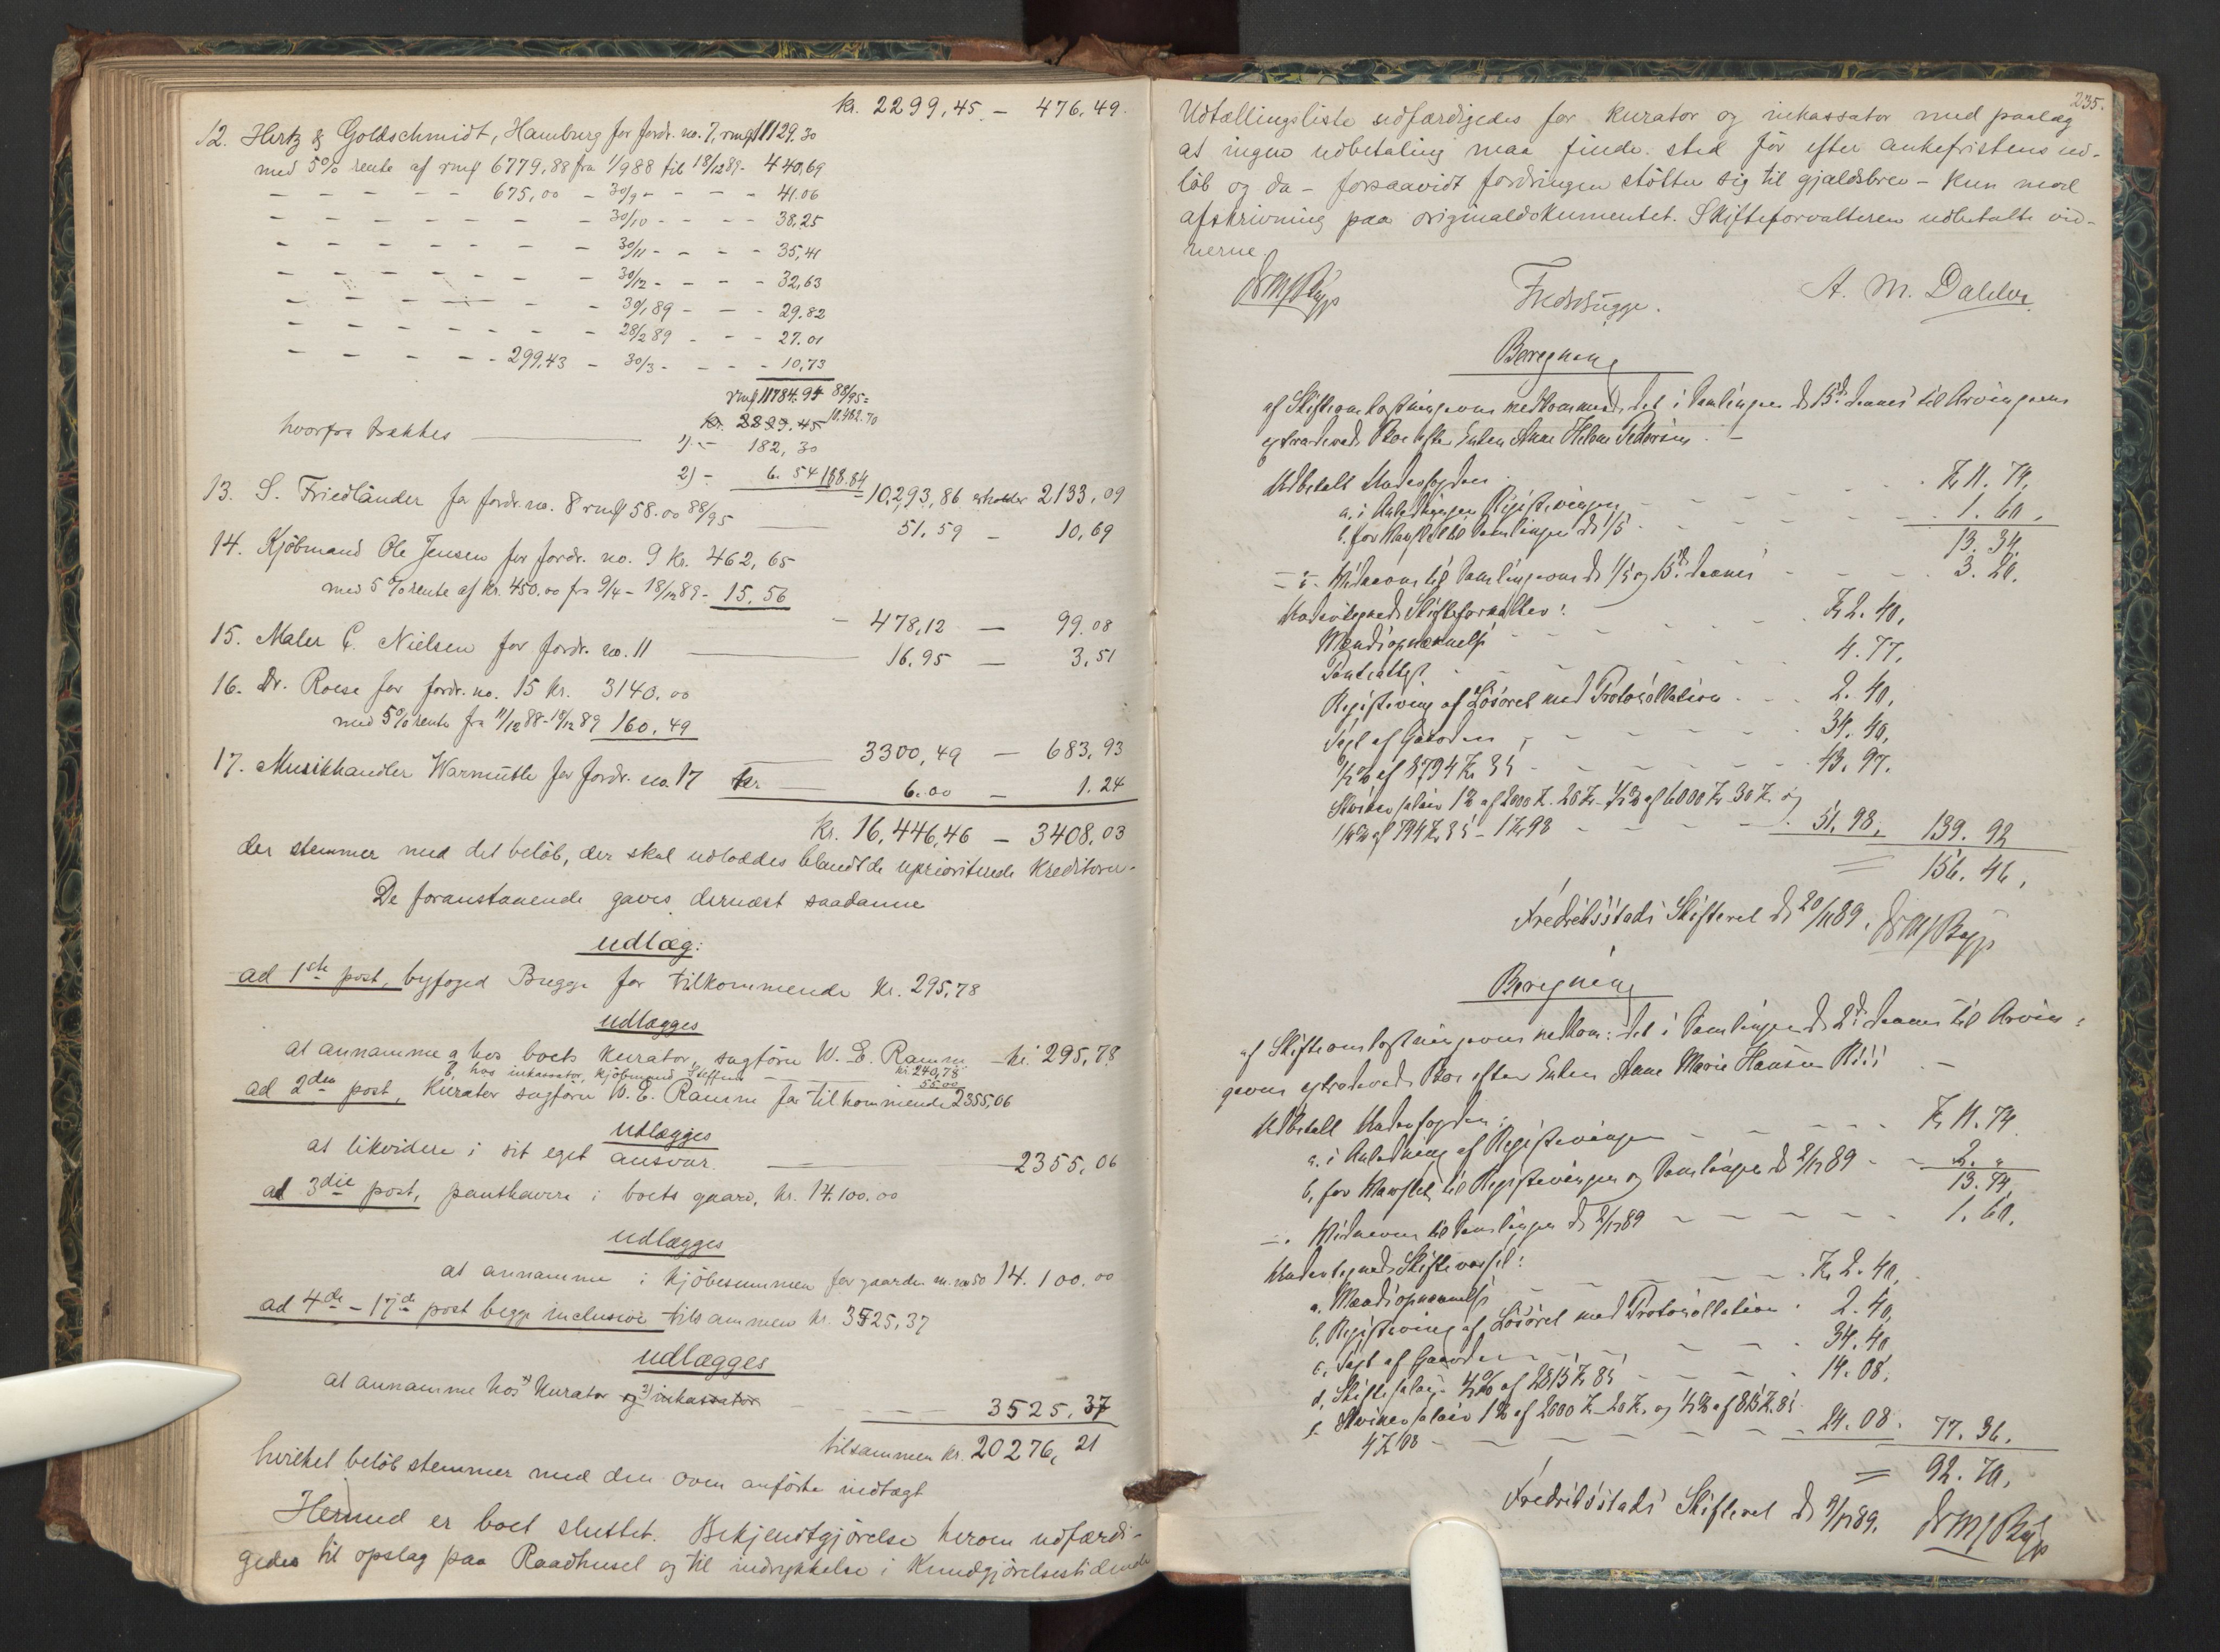 kr. 2299,45 - 476,49.
12. Hertz & Goldschmidt, Hamburg for fordr. no. 7, rmf 11129.30
med 5% rente af rmf 6779,88 fra 1/9 88 til 18/12 89 - 440,69
- - - - - 675,00 - 30/9 - - - - 41.06
- - - - - - - - 30/10 - - - - 38,25
- - - - - - - - 30/11 - - - - 35,41
- - - - - - - - 30/12 - - - - 32,63
- - - - - - - - 30/1 89 - - - 29.82
- - - - - - - - 28/2 89 - - - 27.01
- - - - - - 299,43 - 30/3 - - - - 10,73
rmf 11784.94 88/95 =
kr. 2299.45 10,482.70
hvorfra trækkes 1) - 182,30
2) - 6.54 188.84
10,293,86 erholder 2133,09
13. S. Friedländer for fordr. no. 8 rmf 58.00 88/95 51,59 - 10,69
14. Kjöbmand Ole Jensen for fordr. no. 9 kr. 462,65
med 5% rente af kr. 450.00 fra 9/4 - 18/12 89 - 15,56
- 478,12 - 99.08
15. Maler C. Nielsen for fordr. no. 11 16,95 - 3,51
16. Dr. Roese for fordr. no. 15 kr. 3140.00
med 5% rente fra 11/12 88 - 18/12 89 160,49
3300,49 - 683,93
17. Musikhandler Warmuth for fordr. no. 17 kr. 6.00 - 1.24
kr. 16,446,46 - 3408,03
der stemmer med det belöb, der skal udloddes blandt de uprioriterede kreditorer.
De foranstaaende gaves dernæst saadanne
udlæg:
ad 1ste post, byfoged Bugge for tilkommende kr. 295,78
udlægges
at annamme a hos boets kurator, sagförer W. E. Ramm kr. 240,78 - kr. 295,78
b, hos inkassator, kjöbmand Steffens - 55.00
ad 2den post, kurator sagförer W. E. Ramm for tilkommende 2355,06
udlægges
at likvidere i sit eget ansvar. 2355,06
ad 3die post, panthavere i boets gaard, kr. 14.100.00
udlægges
at annamme i kjöbesummen for gaarden 14.100.00
ad 4de - 17de post begge inclusive tilsammen kr. 3525,37
udlægges
at annamme hos 1) kurator og 2) inkassator 3525,37
tilsammen kr. 20276,21
hvilket belöb stemmer med den oven anförte indtægt
Hermed er boet sluttet. Bekjendtgjörelse herom udfærdi-
gedes til opslag paa Raadhuset og til indrykkelse i Kundgjörelsestidende
235.
Udtællingsliste udfærdigedes for kurator og inkassator med paalæg
at ingen udbetaling maa finde sted för efter ankefristens ud-
löb og da - forsaavidt fordringen stötter sig til gjældsbrev - kun mod
afskrivning paa originaldokumentet. Skifteforvalteren udbetalte vid-
nerne
Fredr. Bugge. A. M. Dahler
Beregning
af Skifteomkostningerne vedkommende det i Samlingen d. 15de dennes til Arvingerne
extraderede Bo efter Enken Anne Helene Pedersen. -
Udbetalt Underfogden
a. i Anledning Registreringen - Kr 11.74,
b. for Varsel til Samlingen d. 1/5 - 1.60,
13.34,
- " - Vidnerne til Samlingerne d. 1/5 og 15de dennes - 3.20.
Undertegnede Skifteforvalter:
Mændsopnævnelse - Kr 2.40,
Panteattest - 4.77,
Registrering af Lösöret med Protokollation - 2.40,
Taxt af Gaarden - 34.40,
1/2% af 8794 Kr 35 - 43.97.
Skriversalair 1% af 2000 Kr. 20 Kr. 1/2% af 6000 Kr 30 Kr. og
1/4% af 794 Kr 35 - 1 Kr 98 - 51.98, 139.92
= 156.46,
Fredriksstads Skifteret d. 20/11 89.
Beregning
af Skifteomkostningerne vedkom: det i Samlingen d. 2de dennes til Arvin-
gerne extraderede Bo efter Enken Anne Marie Hansen Riis -
Udbetalt Underfogden:
a. i Anledning af Registreringen - Kr 11.74
b, for Varsel til Registreringen og Samlingen d. 2/12 89 - 2. "
13.74,
- " Vidnerne til Samlingen d. 2/12 89 - 1.60,
Undertegnede Skifteforvalter:
a. Mændsopnævnelse - Kr 2.40,
b. Registrering af Lösöret med Protokollation - 2.40,
c. Taxt af Gaarden - 34.40
d. Skiftesalair 1/2% af 2815 Kr 85 - 14.08,
e. Skriversalair 1% af 2000 Kr - 20 Kr. og 1/2% af 815 Kr. 85
4 Kr 08 - 24.08. 77.36.
= 92.70,
Fredriksstads Skifteret d. 9/12 89.